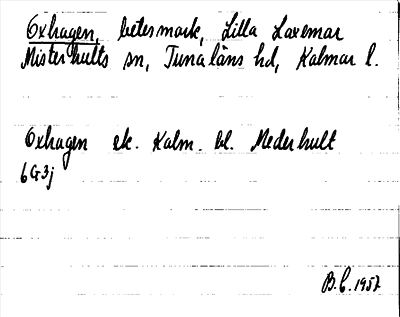 Oxhagen, betesmark, Lilla Laxemar
Misterhults sn, Tunaläns hd, Kalmar l.
Oxhagen ek. Kalm. bl. Mederhult
6G3j
B.C. 1957